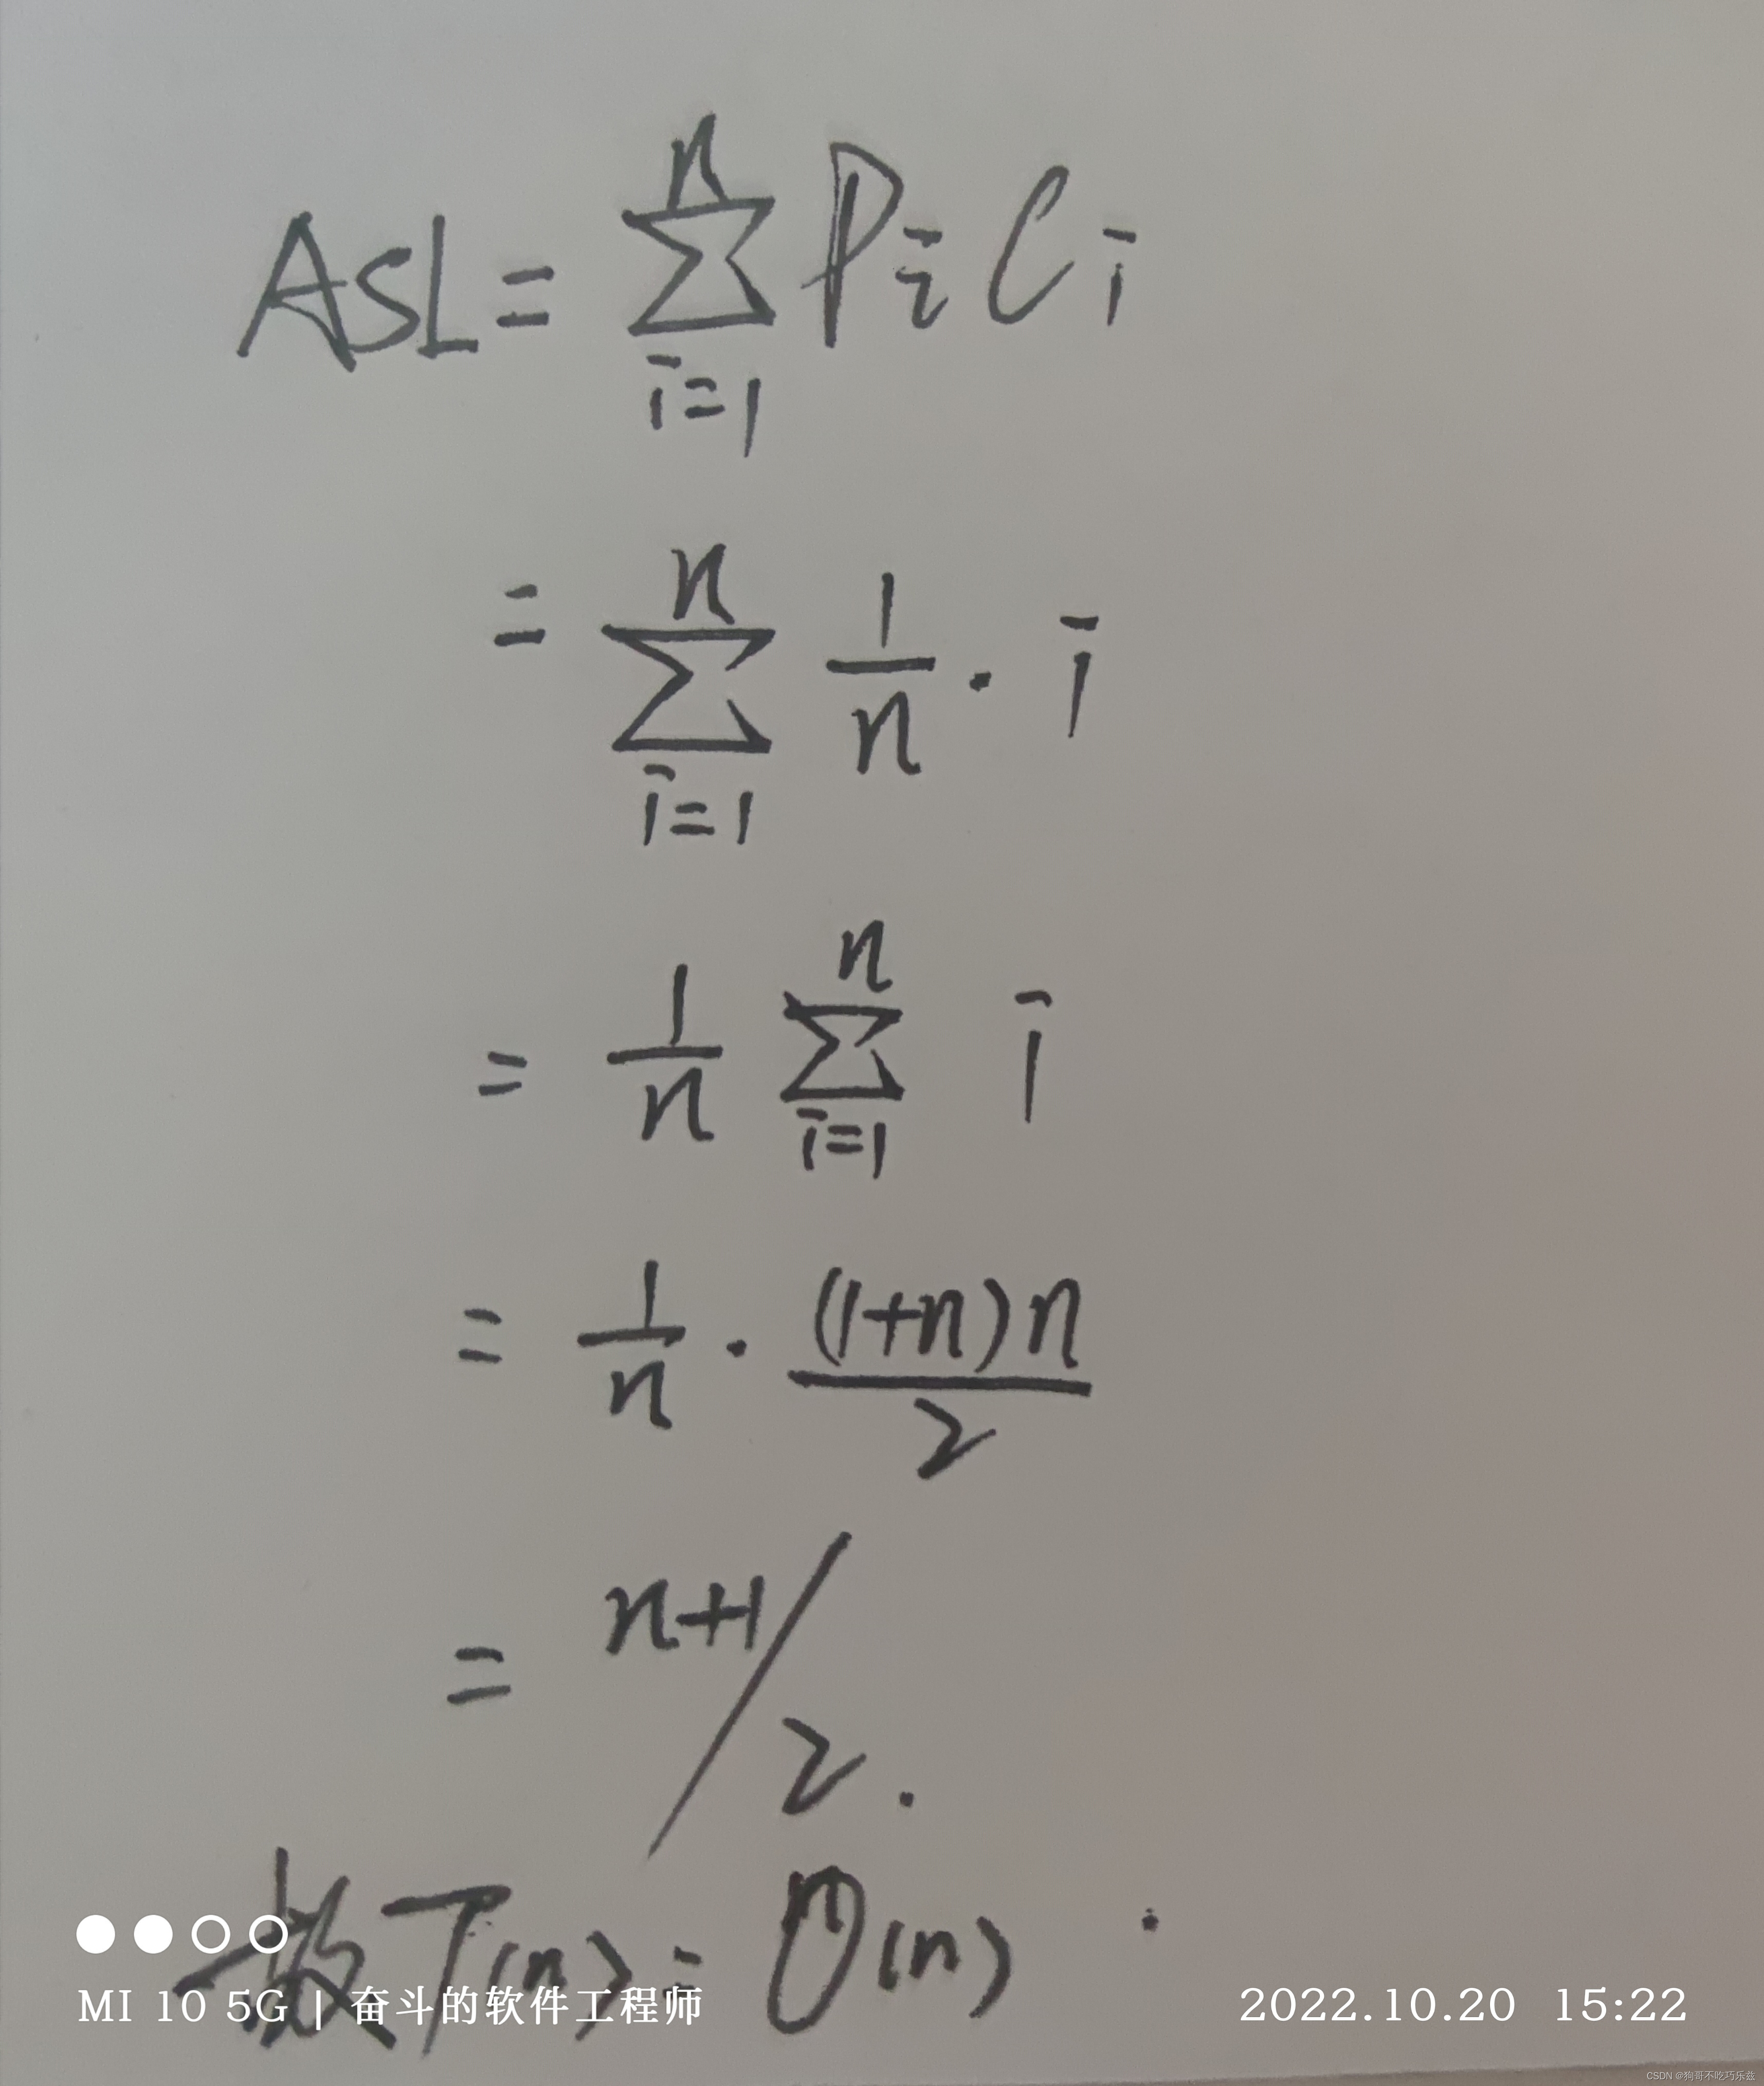 ASL = \sum_{i=1}^{n} P_i C_i
= \sum_{i=1}^{n} \frac{1}{n} \cdot i
= \frac{1}{n} \sum_{i=1}^{n} i
= \frac{1}{n} \cdot \frac{(1+n)n}{2}
= n+1/2.
故T(n)=O(n).
MI 10 5G | 奋斗的软件工程师
2022.10.20 15:22
CSDN @狗哥不吃巧乐兹